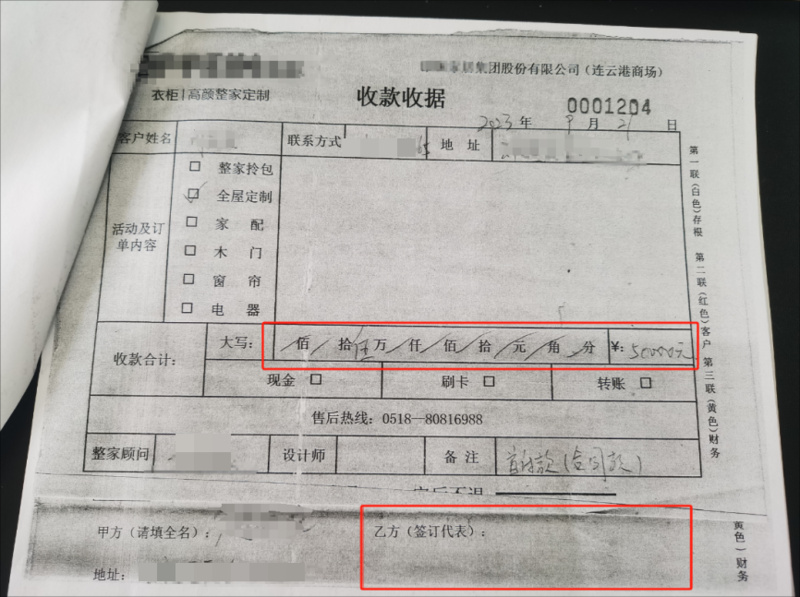 家居集团股份有限公司（连云港商场）
衣柜|高颜整家定制
收款收据
0001204
2023年9月21日
客户姓名 联系方式 地址
活动及订单内容
整家拎包
全屋定制
家配
木门
窗帘
电器
收款合计： 大写： 佰 拾 伍万 仟 佰 拾 元 角 分 ¥：50000元
现金 刷卡 转账
售后热线：0518—80816988
整家顾问 设计师 备注 首付款（合同款）
甲方（请填全名）： 乙方（签订代表）：
地址：
第一联（白色）存根 第二联（红色）客户 第三联（黄色）财务
黄色）财务